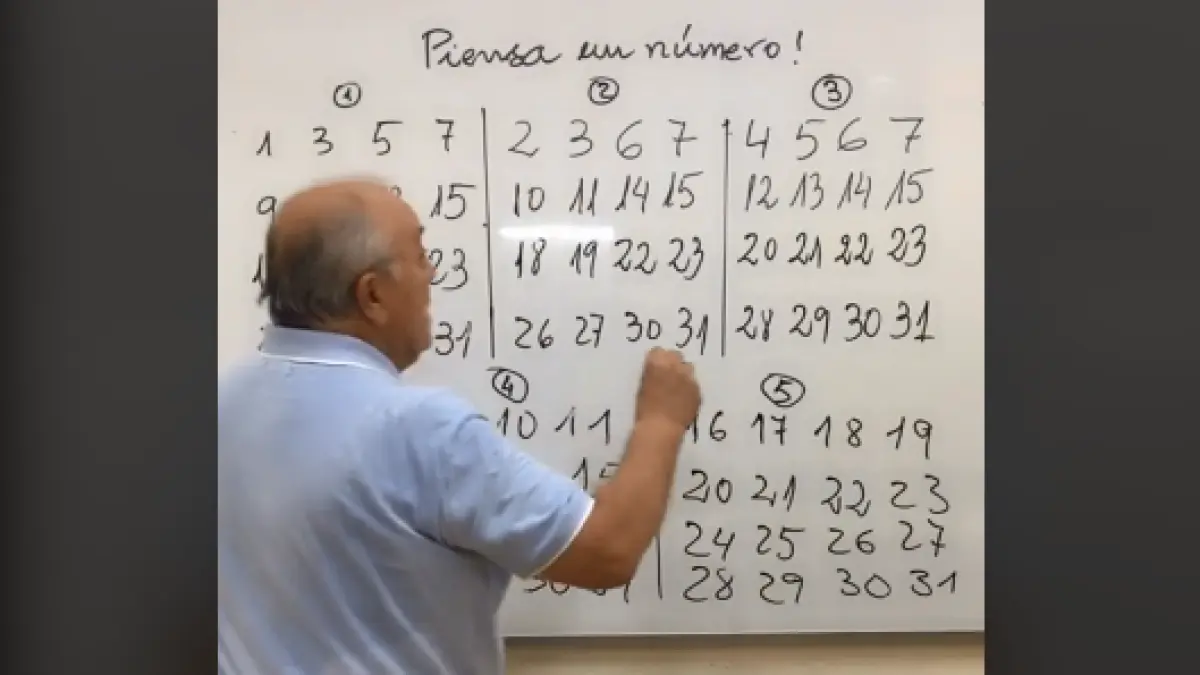 Piensa un número!
1 2 3
1 3 5 7 2 3 6 7 4 5 6 7
9 15 10 11 14 15 12 13 14 15
23 18 19 22 23 20 21 22 23
31 26 27 30 31 28 29 30 31
4 5
10 11 16 17 18 19
15 20 21 22 23
24 25 26 27
28 29 30 31